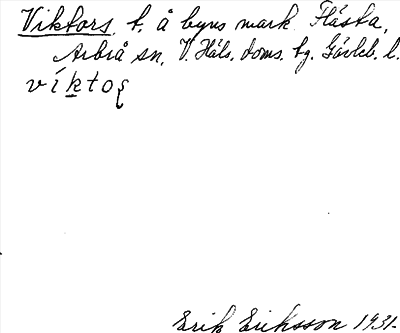 Viktors, t. å byns mark Flästa,
Arbrå sn, V. Häls. doms. tg. Gävleb. l.
víktoʂ
Erik Eriksson 1931.